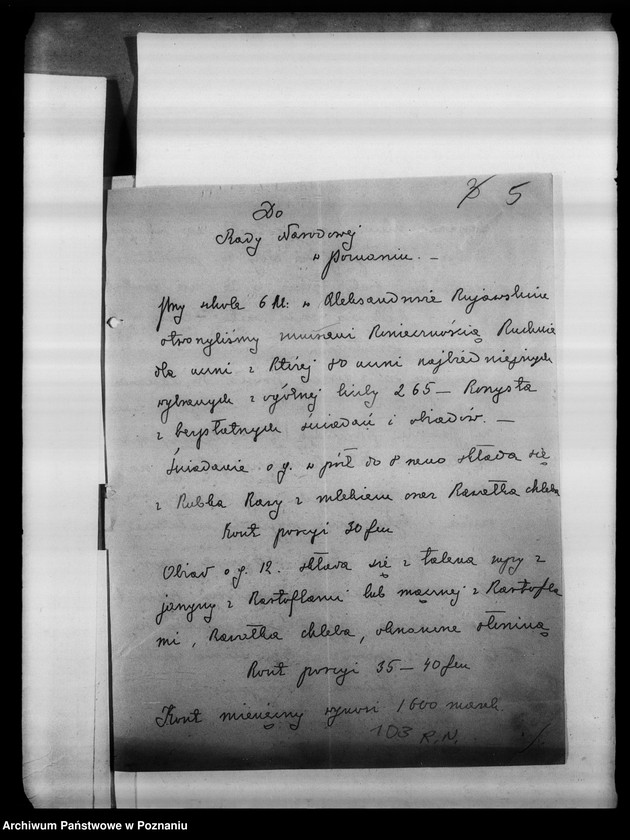 5
Do
Rady Narodowej
w Poznaniu. –
Przy szkole 6 kl: w Aleksandrowie Kujawskim
otworzyliśmy zmuszeni koniecznością kuchnię
dla uczni z której 80 uczni najbiedniejszych
wybranych z ogólnej liczby 265 – korzysta
z bezpłatnych śniadań i obiadów. –
Śniadanie o g. w pół do 8 rano składa się
z kubka kawy z mlekiem oraz kawałka chleba
Koszt porcyi 30 fen
Obiad o g. 12. składa się z talerza zupy z
jarzyny z kartoflami lub mącznej z kartofla
mi, kawałka chleba, okraszone słoniną
Koszt porcyi 35 – 40 fen
Koszt miesięczny wynosi 1600 marek.
103 R.N. ./.
Archiwum Państwowe w Poznaniu